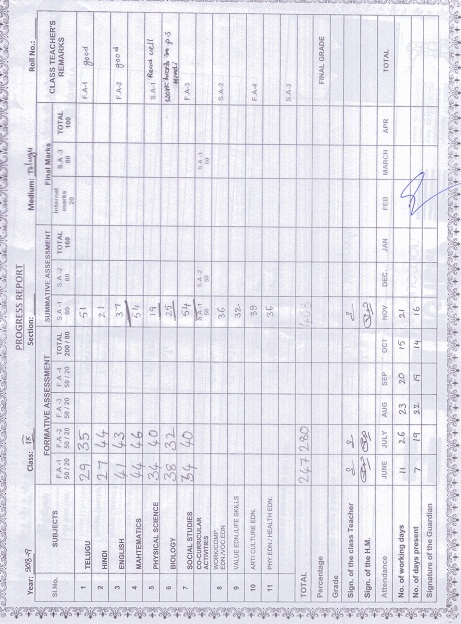 PROGRESS REPORT
Year: 2018-19 Class: IX Section: Medium: Telugu Roll No.:
Sl.No. SUBJECTS FORMATIVE ASSESSMENT SUMMATIVE ASSESSMENT Final Marks CLASS TEACHER'S REMARKS
F.A-1 50/20 F.A-2 50/20 F.A-3 50/20 F.A-4 50/20 TOTAL 200/80 S.A-1 80 S.A-2 80 TOTAL 160 Internal marks 20 S.A-3 80 TOTAL 100
1 TELUGU 29 35 51 F.A-1 good
2 HINDI 27 44 21
3 ENGLISH 41 43 37 F.A-2 good
4 MATHEMATICS 44 46 54
5 PHYSICAL SCIENCE 34 40 19 S.A-1 Read well
6 BIOLOGY 38 32 25 work hard in p.s
7 SOCIAL STUDIES 34 40 54 F.A-3
CO-CURRICULAR ACTIVITIES S.A-1 50 S.A-2 50 S.A-3 50
8 WORK/COMP. EDN./VOC.EDN. 36 S.A-2
9 VALUE EDN./LIFE SKILLS 32
10 ART/ CULTURE EDN. 38 F.A-4
11 PHY.EDN./ HEALTH EDN. 36
TOTAL 247 280 S.A-3
Percentage
Grade FINAL GRADE
Sign. of the class Teacher
Sign. of the H.M.
Attendance JUNE JULY AUG SEP OCT NOV DEC JAN FEB MARCH APR TOTAL
No. of working days 11 26 23 20 15 21
No. of days present 7 19 22 19 14 16
Signature of the Guardian